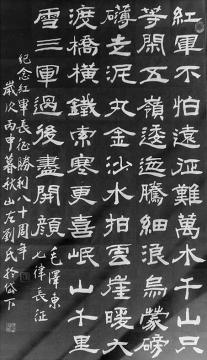 紅軍不怕遠征難萬水千山只
等閑五嶺逶迤騰細浪烏蒙磅
礴走泥丸金沙水拍雲崖暖大
渡橋橫鐵索寒更喜岷山千里
雪三軍過後盡開顏
毛澤東
七律長征
紀念紅軍長征勝利八十周年
歲次丙申暮秋山左劉氏於岱下